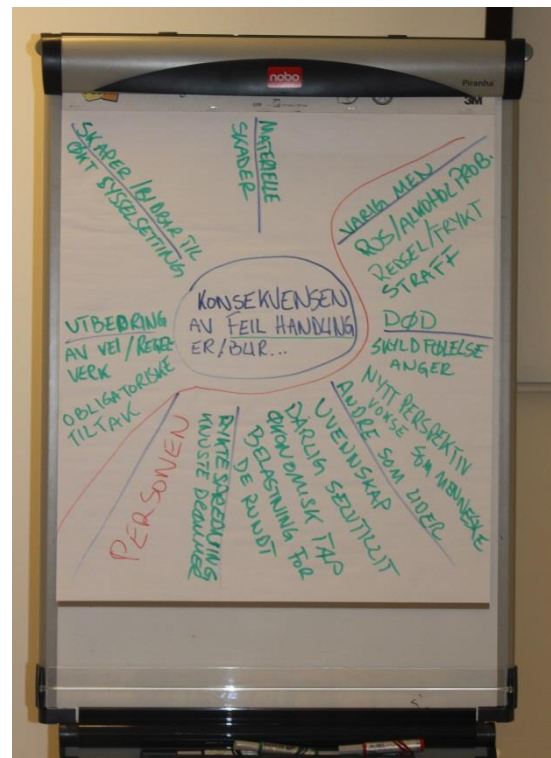 nobo
Piranha
3M
SKAPER/BIDRAR TIL
ØKT SYSSELSETTING
MATERIELLE
SKADER
VARIG MEN
RUS/ALKOHOL PROB.
REDSEL/FRYKT
STRAFF
KONSEKVENSEN
AV FEIL HANDLING
ER/BLIR...
UTBEDRING
AV VEI/
VERK
OBLIGATORISKE
TILTAK
DØD
SKYLDFØLELSE
ANGER
NYTT PERSPEKTIV
VOKSE SOM MENNESKE
ANDRE SOM LIDER
UVENNSKAP
DÅRLIG SELVTILLIT
ØKONOMISK TAP
BELASTNING FOR
DE RUNDT
RYKTESPREDNING
KNUSTE DRØMMER
PERSONEN